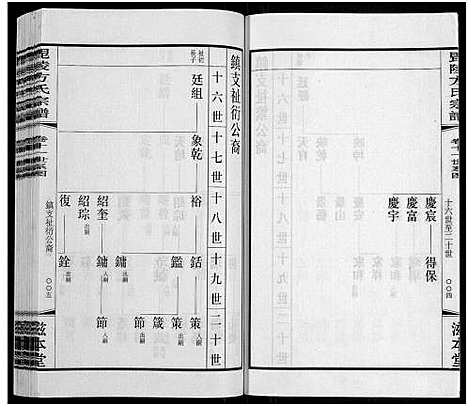 毘陵方氏宗譜
卷十一 世系图
十六世至二十世
〇〇四
滋本堂
慶宸 得保
慶富
慶宇
鎮支祉衍公裔
十六世 十七世 十八世 十九世 二十世
祉衍 長子
廷組 象乾 裕 銛 策 入嗣
鑑 策 出嗣
箴
節 出嗣
鏞 出嗣
紹奎 鏞 入嗣 節 入嗣
紹琮 出嗣
復 銓 出嗣
毘陵方氏宗譜
卷十一 世系图
鎮支祉衍公裔
〇〇五
滋本堂